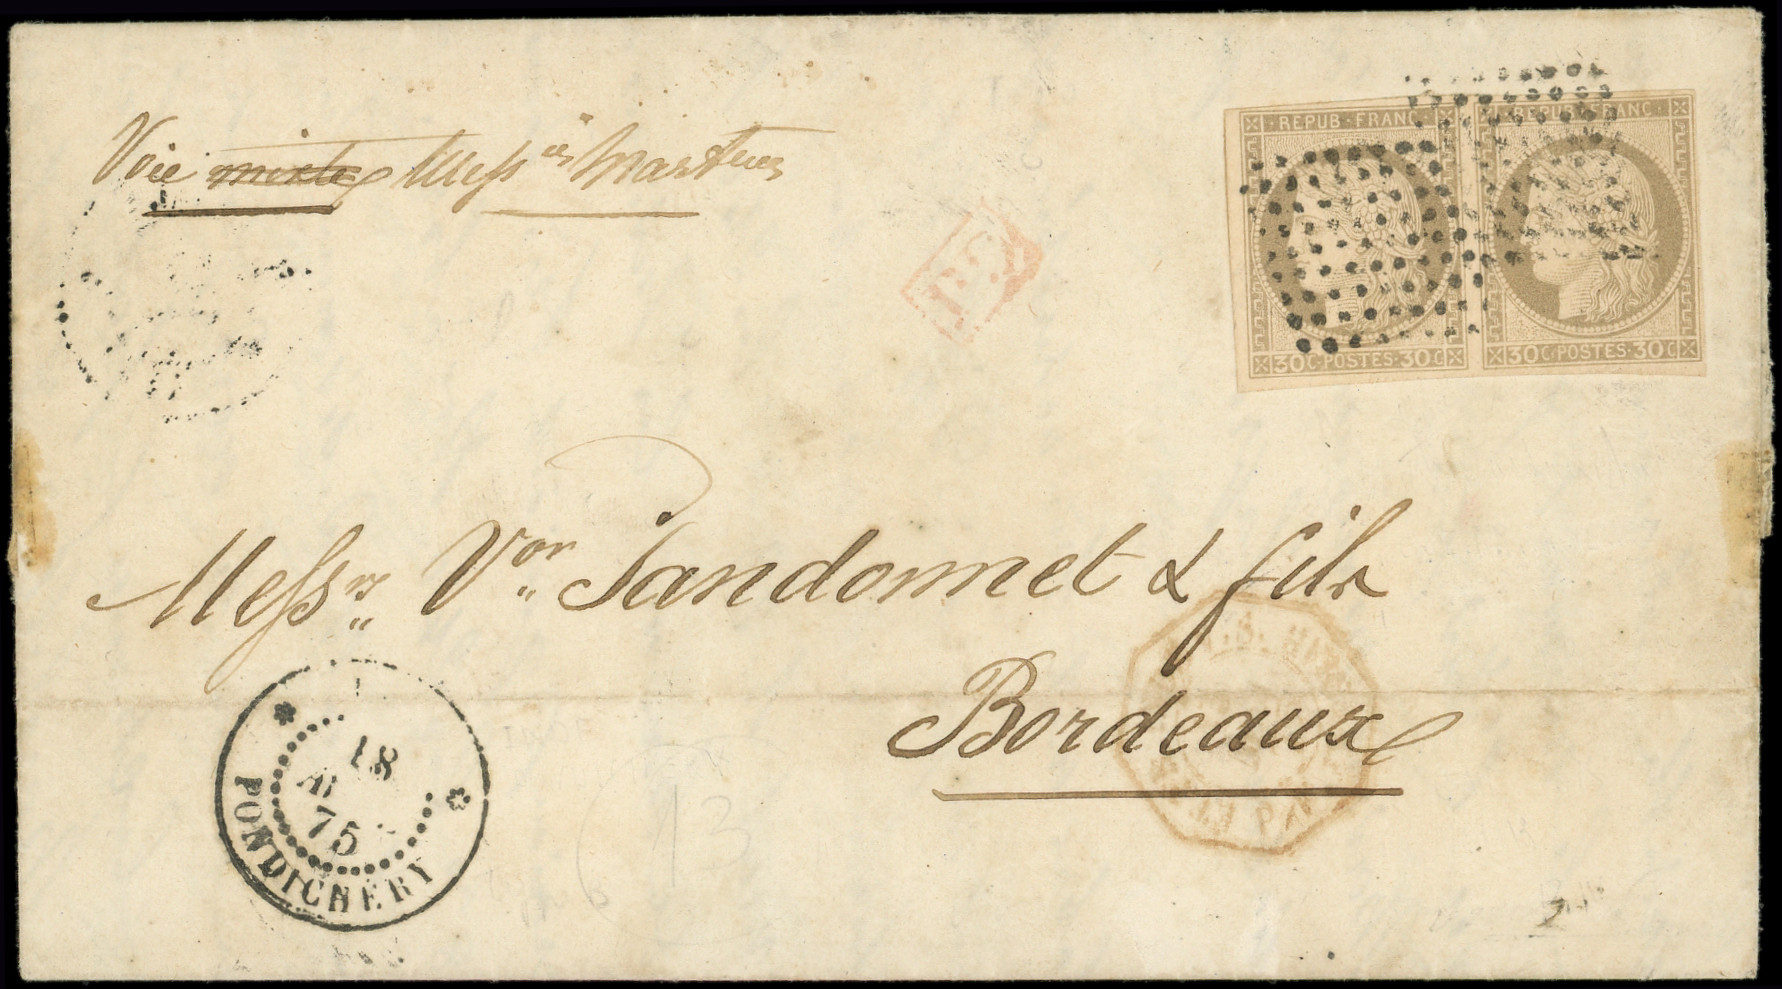 Voie mixte Mess ies Maritimes
P.D.
REPUB·FRANC·
30C·POSTES·30C
REPUB·FRANC·
30C·POSTES·30C
Messrs. Vor. Sandonnet & fils
Bordeaux
18
75
PONDICHERY
13
2